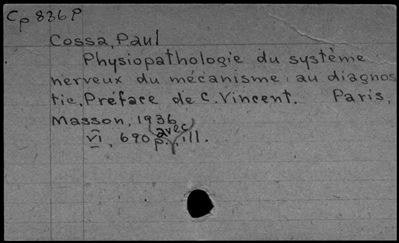 Cp 836 P
Cossa, Paul
Physiopathologie du système
nerveux du mécanisme au diagnos
tic. Préface de C. Vincent. Paris,
Masson, 1936
VI, 690 p. avec ill.